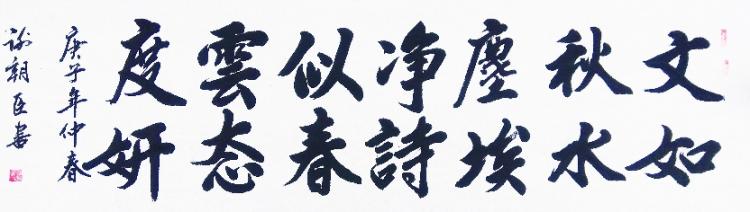 文如
秋水
塵埃
净詩
似春
雲态
度妍
庚子年仲春
谢朝臣書